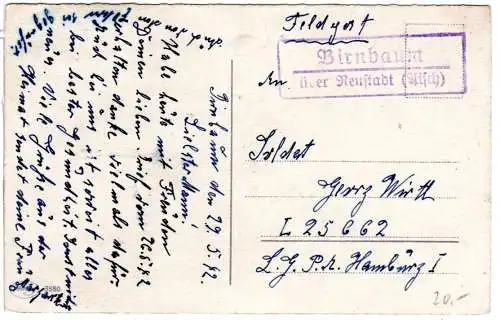 Feldpost
Birnbaum
über Neustadt (Aisch)
An
Soldat
Georg Wirth
L 25662
L.G.P.A. Hamburg I
20.-
Birnbaum den 29.5.42
Liebster Mann!
Habe heute mit Freuden
Deinen lieben Brief vom 26.5.42
erhalten danke vielmals dafür
bei uns ist soweit alles
bei bester Gesundheit.
Viele Grüße aus der
Heimat sendet deine Frau
3880